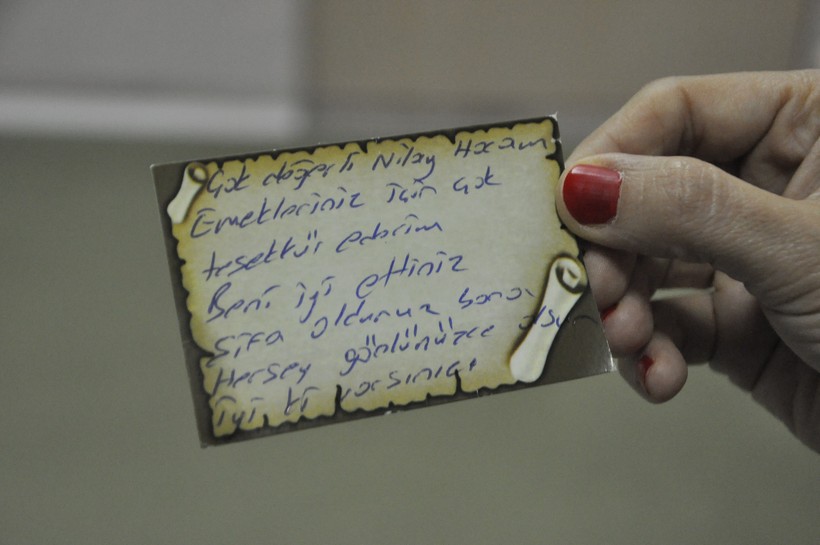 Çok değerli Nilay Hocam
Emekleriniz için çok
teşekkür ederim
Beni iyi ettiniz
Şifa oldunuz bana
Herşey gönlünüzce olsun
İyi ki varsınız